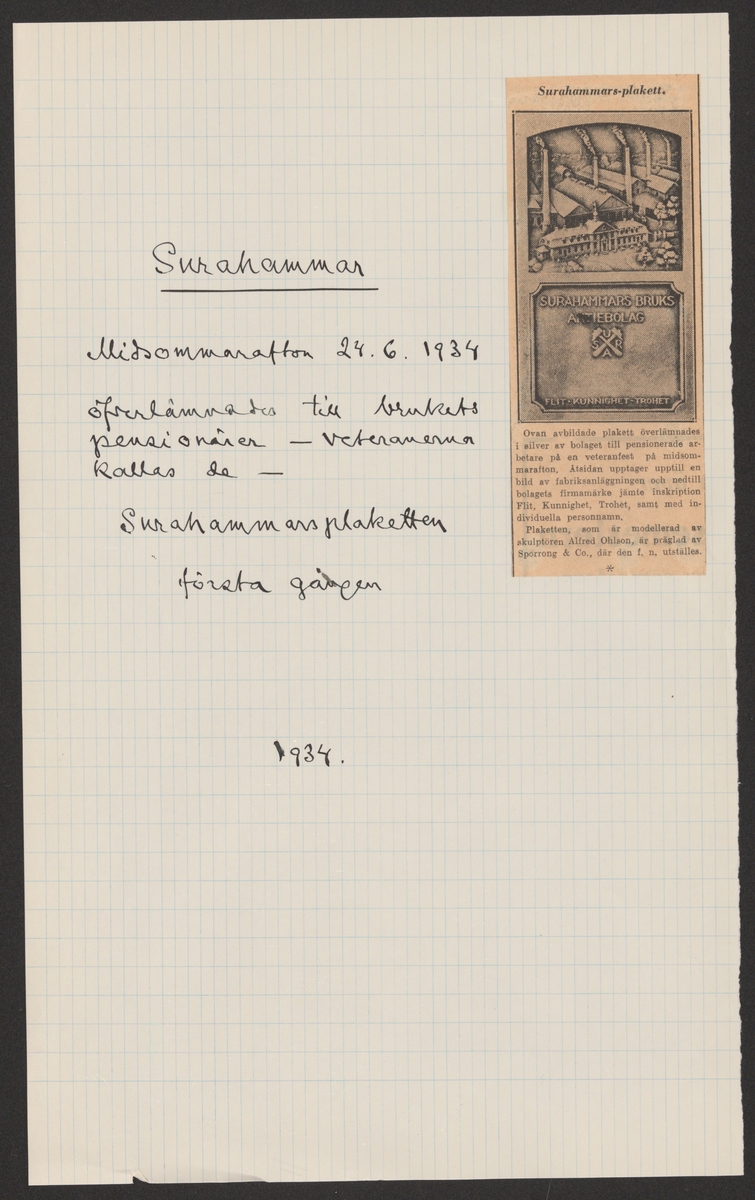 Surahammar
Midsommarafton 24. 6. 1934
öfverlämnades till brukets
pensionärer – veteranerna
kallas de –
Surahammarsplaketten
första gången
1934.
Surahammars-plakett.
SURAHAMMARS BRUKS
AKTIEBOLAG
SURA
FLIT · KUNNIGHET · TROHET
Ovan avbildade plakett överlämnades
i silver av bolaget till pensionerade ar-
betare på en veteranfest på midsom-
marafton. Åtsidan upptager upptill en
bild av fabriksanläggningen och nedtill
bolagets firmamärke jämte inskription
Flit, Kunnighet, Trohet, samt med in-
dividuella personnamn.
Plaketten, som är modellerad av
skulptören Alfred Ohlson, är präglad av
Sporrong & Co., där den f. n. utställes.
*